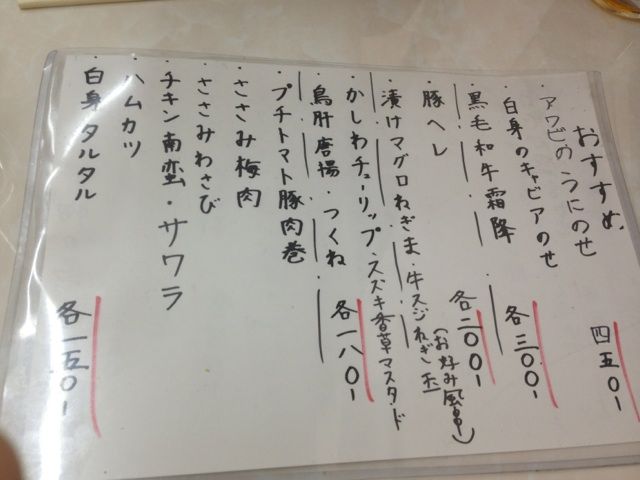 おすすめ
・アワビのうにのせ 四五〇-
・白身のキャビアのせ
・黒毛和牛霜降 各三〇〇-
・豚ヘレ 各二〇〇-
・漬けマグロねぎま・牛スジねぎ玉(お好み風)
・かしわチューリップ・スズキ香草マスタード
・鳥肝唐揚・つくね 各一八〇-
・プチトマト豚肉巻
・ささみ梅肉
・ささみわさび
・チキン南蛮・サワラ
・ハムカツ
・白身タルタル 各一五〇-